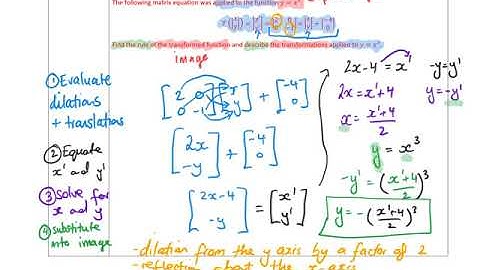 The following matrix equation was applied to the function y = x³.
Find the rule of the transformed function and describe the transformations applied to y = x³.
image
① Evaluate dilations + translations
[2 0; 0 -1][x; y] + [-4; 0]
[2x; -y] + [-4; 0]
[2x-4; -y] = [x'; y']
② Equate x' and y'
③ Solve for x and y
④ substitute into image
2x-4 = x'
-y = y'
2x = x'+4
y = -y'
x = (x'+4)/2
y = x³
-y' = ((x'+4)/2)³
y = -((x'+4)/2)³
- dilation from the y axis by a factor of 2
- reflection about the x-axis